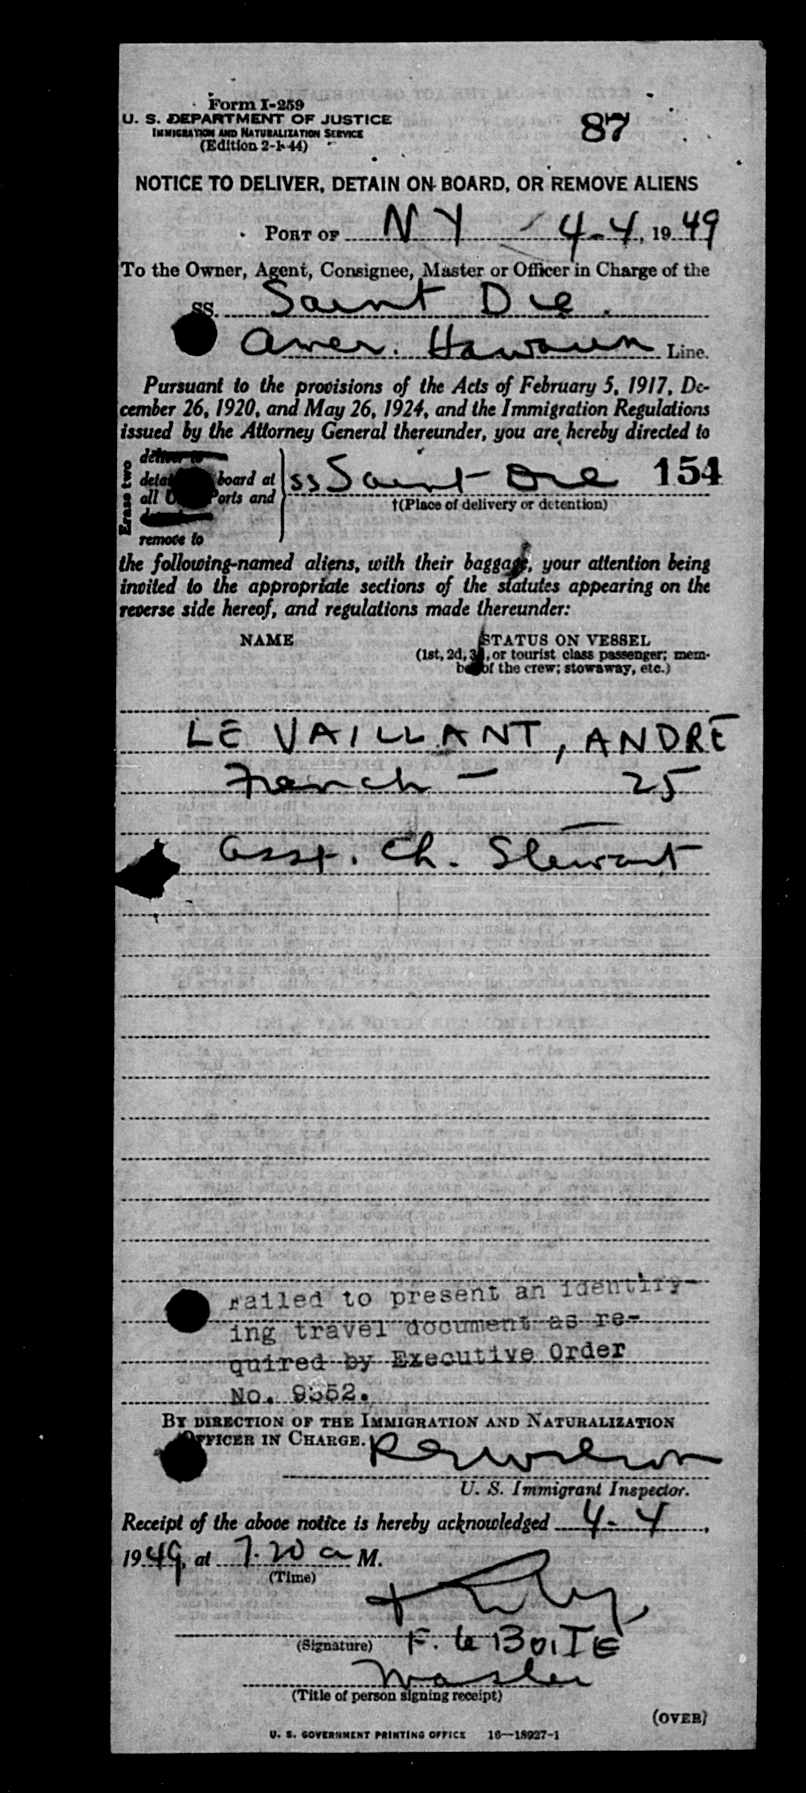 Form I-259
87
U. S. DEPARTMENT OF JUSTICE
IMMIGRATION AND NATURALIZATION SERVICE
(Edition 2-1-44)
NOTICE TO DELIVER, DETAIN ON BOARD, OR REMOVE ALIENS
PORT OF NY 4-4, 1949
To the Owner, Agent, Consignee, Master or Officer in Charge of the
SS. Saint Die.
Amer. Hawaiian Line.
Pursuant to the provisions of the Acts of February 5, 1917, De-
cember 26, 1920, and May 26, 1924, and the Immigration Regulations
issued by the Attorney General thereunder, you are hereby directed to
Erase two
board at
all Ports and
remove to
SS Saint Die 154
†(Place of delivery or detention)
the following-named aliens, with their baggage, your attention being
invited to the appropriate sections of the statutes appearing on the
reverse side hereof, and regulations made thereunder:
NAME
STATUS ON VESSEL
(1st, 2d, 3d, or tourist class passenger; mem-
ber of the crew; stowaway, etc.)
LE VAILLANT, ANDRÉ
French - 25
Asst. Ch. Stewart
Failed to present an identify-
ing travel document as re-
quired by Executive Order
No. 9352.
BY DIRECTION OF THE IMMIGRATION AND NATURALIZATION
OFFICER IN CHARGE.
U. S. Immigrant Inspector.
Receipt of the above notice is hereby acknowledged 4-4,
1949, at 7.20 a M.
(Time)
(Signature) F. le BOITE
Master
(Title of person signing receipt)
(OVER)
U. S. GOVERNMENT PRINTING OFFICE 16—18927-1